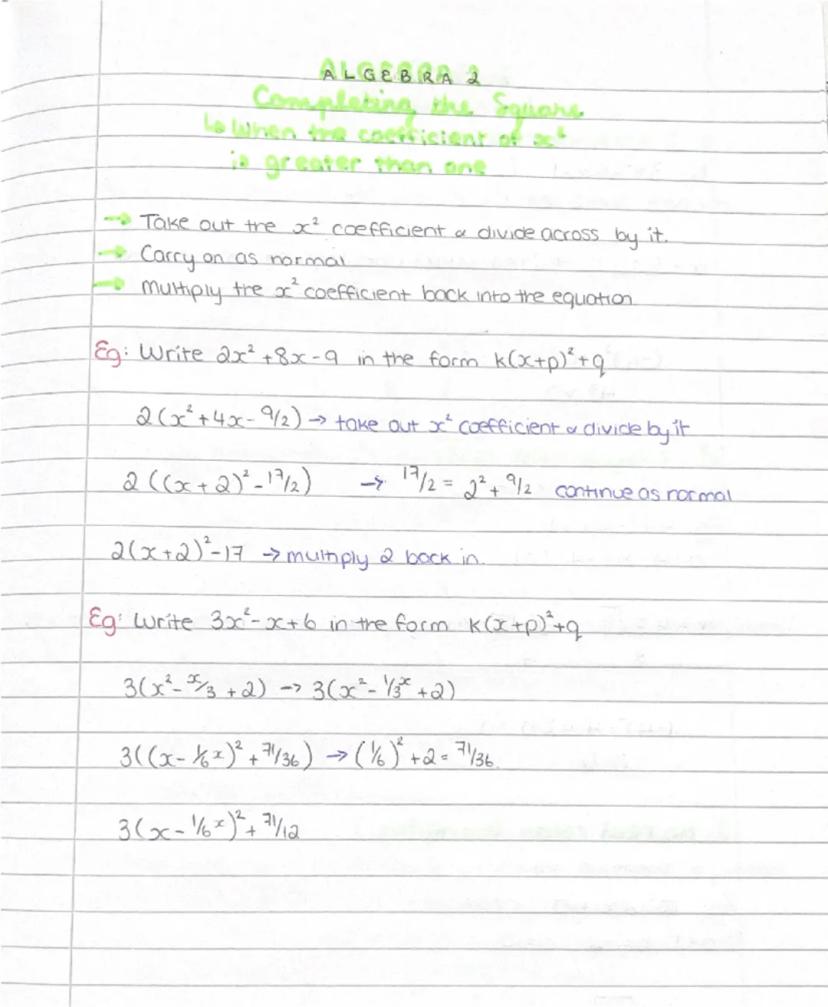 ALGEBRA 2
Completing the Square
↳ When the coefficient of x²
is greater than one
→ Take out the x² coefficient & divide across by it.
→ Carry on as normal
→ multiply the x² coefficient back into the equation
Eg: Write 2x² + 8x - 9 in the form k(x+p)² + q
2(x² + 4x - 9/2) → take out x² coefficient & divide by it
2((x + 2)² - 17/2) → 17/2 = 2² + 9/2 continue as normal
2(x+2)² - 17 → multiply 2 back in.
Eg: Write 3x² - x + 6 in the form k(x+p)² + q
3(x² - x/3 + 2) → 3(x² - 1/3x + 2)
3((x - 1/6x)² + 71/36) → (1/6)² + 2 = 71/36.
3(x - 1/6x)² + 71/12